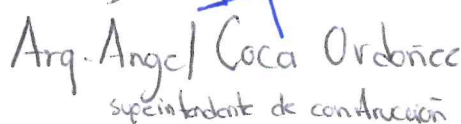 Arq. Angel Coca Ordoñez
superintendente de construcción